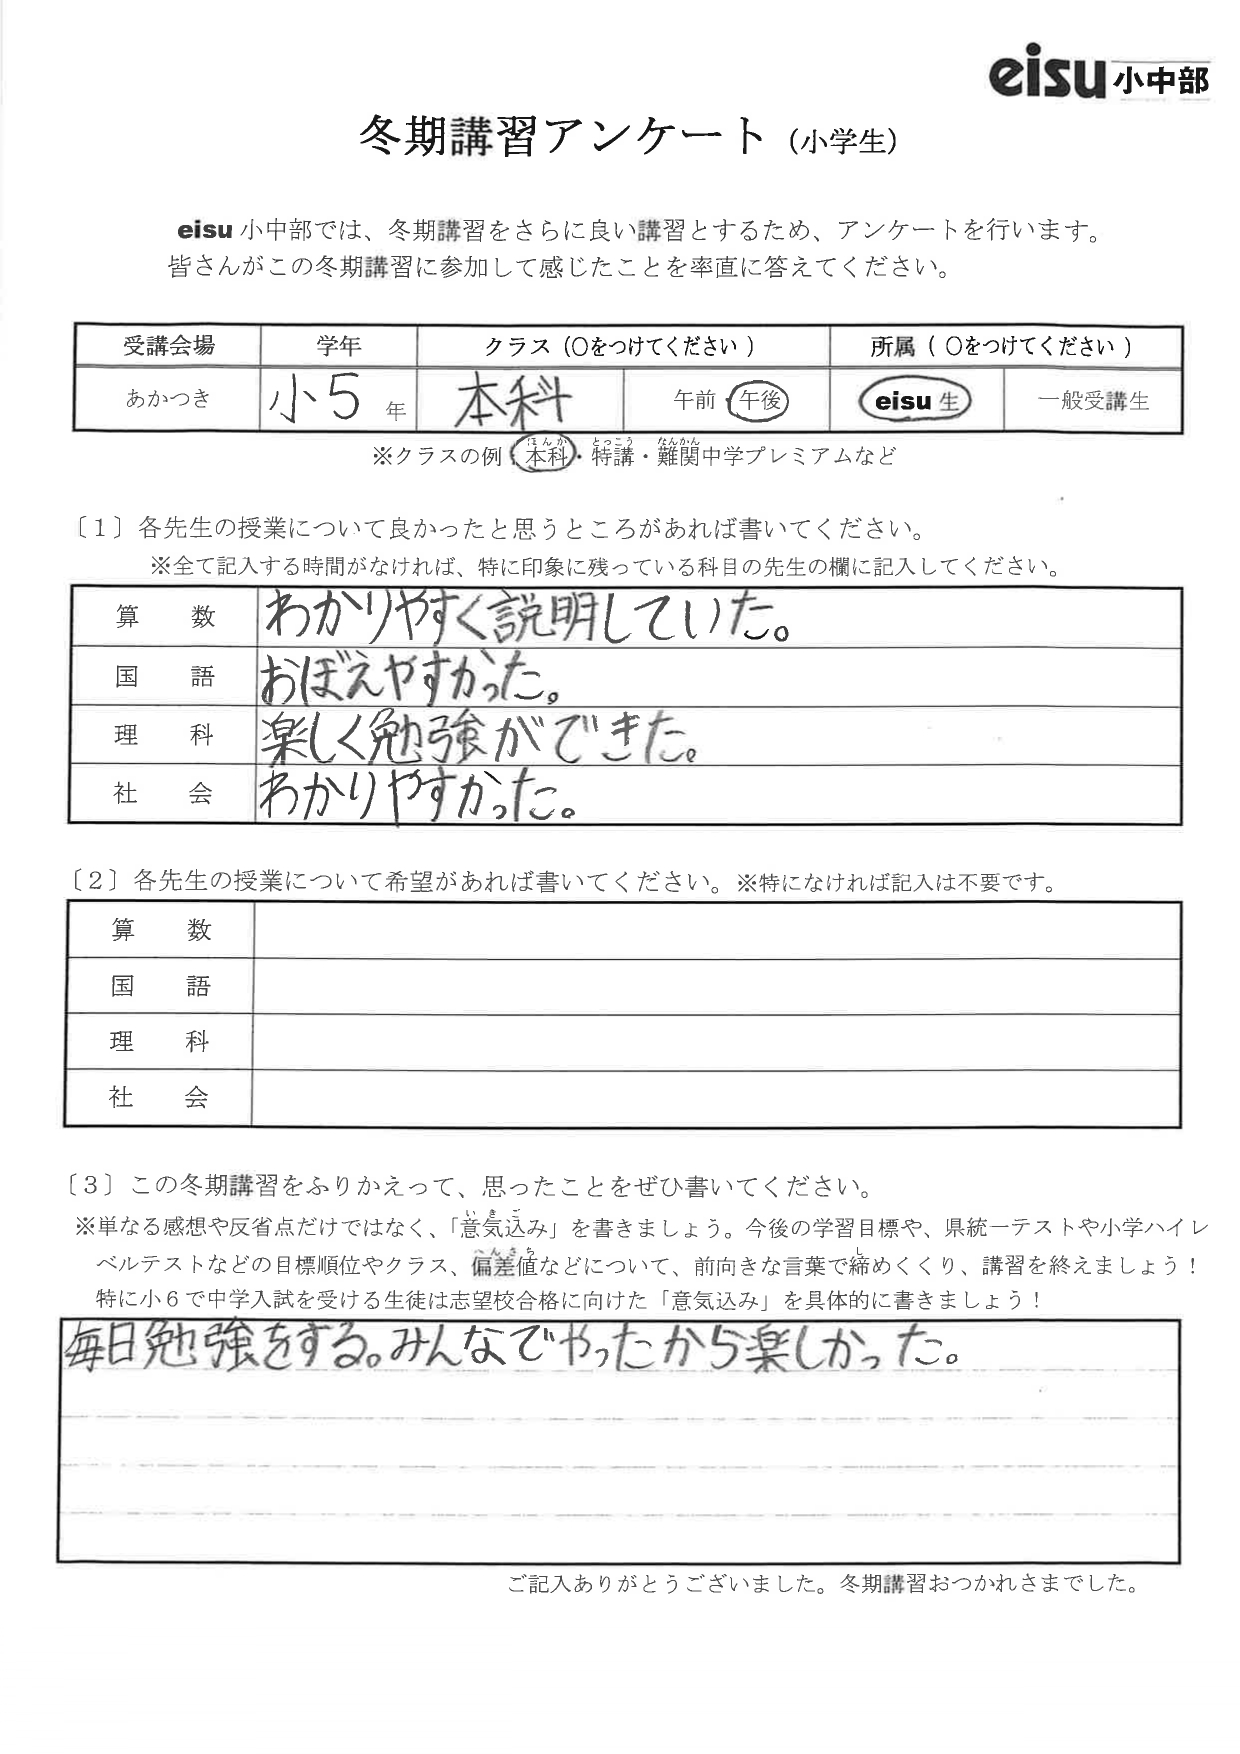 eisu 小中部
冬期講習アンケート（小学生）
eisu 小中部では、冬期講習をさらに良い講習とするため、アンケートを行います。
皆さんがこの冬期講習に参加して感じたことを率直に答えてください。
受講会場 学年 クラス（○をつけてください） 所属（○をつけてください）
あかつき 小5 年 本科 午前・午後 eisu 生 一般受講生
ほんか とっこう なんかん
※クラスの例：本科・特講・難関中学プレミアムなど
〔1〕各先生の授業について良かったと思うところがあれば書いてください。
※全て記入する時間がなければ、特に印象に残っている科目の先生の欄に記入してください。
算 数 わかりやすく説明していた。
国 語 おぼえやすかった。
理 科 楽しく勉強ができた。
社 会 わかりやすかった。
〔2〕各先生の授業について希望があれば書いてください。※特になければ記入は不要です。
算 数
国 語
理 科
社 会
〔3〕この冬期講習をふりかえって、思ったことをぜひ書いてください。
いきご
※単なる感想や反省点だけではなく、「意気込み」を書きましょう。今後の学習目標や、県統一テストや小学ハイレ
へんさち し
ベルテストなどの目標順位やクラス、偏差値などについて、前向きな言葉で締めくくり、講習を終えましょう！
特に小6で中学入試を受ける生徒は志望校合格に向けた「意気込み」を具体的に書きましょう！
毎日勉強をする。みんなでやったから楽しかった。
ご記入ありがとうございました。冬期講習おつかれさまでした。